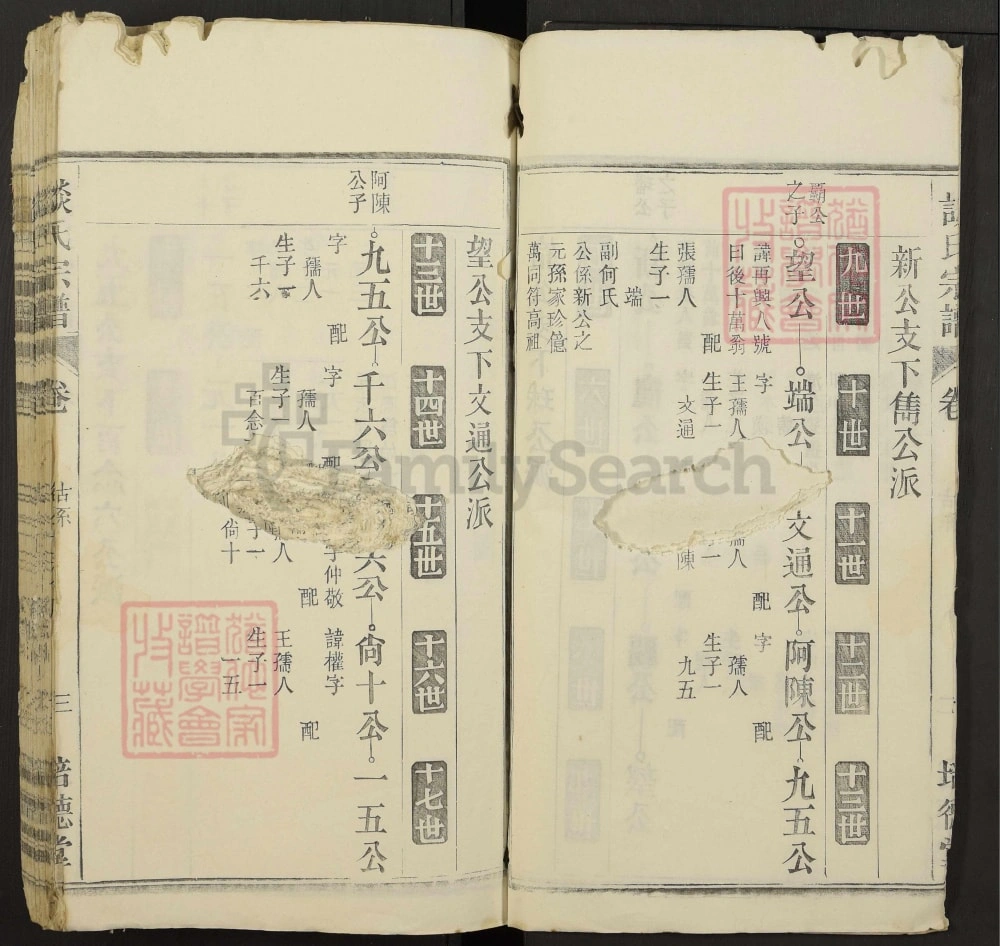 新公支下雋公派
九世
十世
十一世
十二世
十三世
霸公
之子
望公
端公
文通公
阿陳公
九五公
諱再興八號
曰後十萬翁
配
張孺人
生子一
端
副何氏
公係新公之
元孫家珍億
萬同符高祖
字
王孺人
生子一
文通
配
孺人
陳
字
配
孺人
生子一
九五
望公支下文通公派
十三世
十四世
十五世
十六世
十七世
阿陳
公子
九五公
千六公
六公
尙十公
一五公
字
配
孺人
生子一
千六
字
配
孺人
生子
字仲敬
配
人
子一
尙十
諱權字
配
王孺人
生子一
一五
談氏宗譜
卷
古系
三
培德堂
FamilySearch